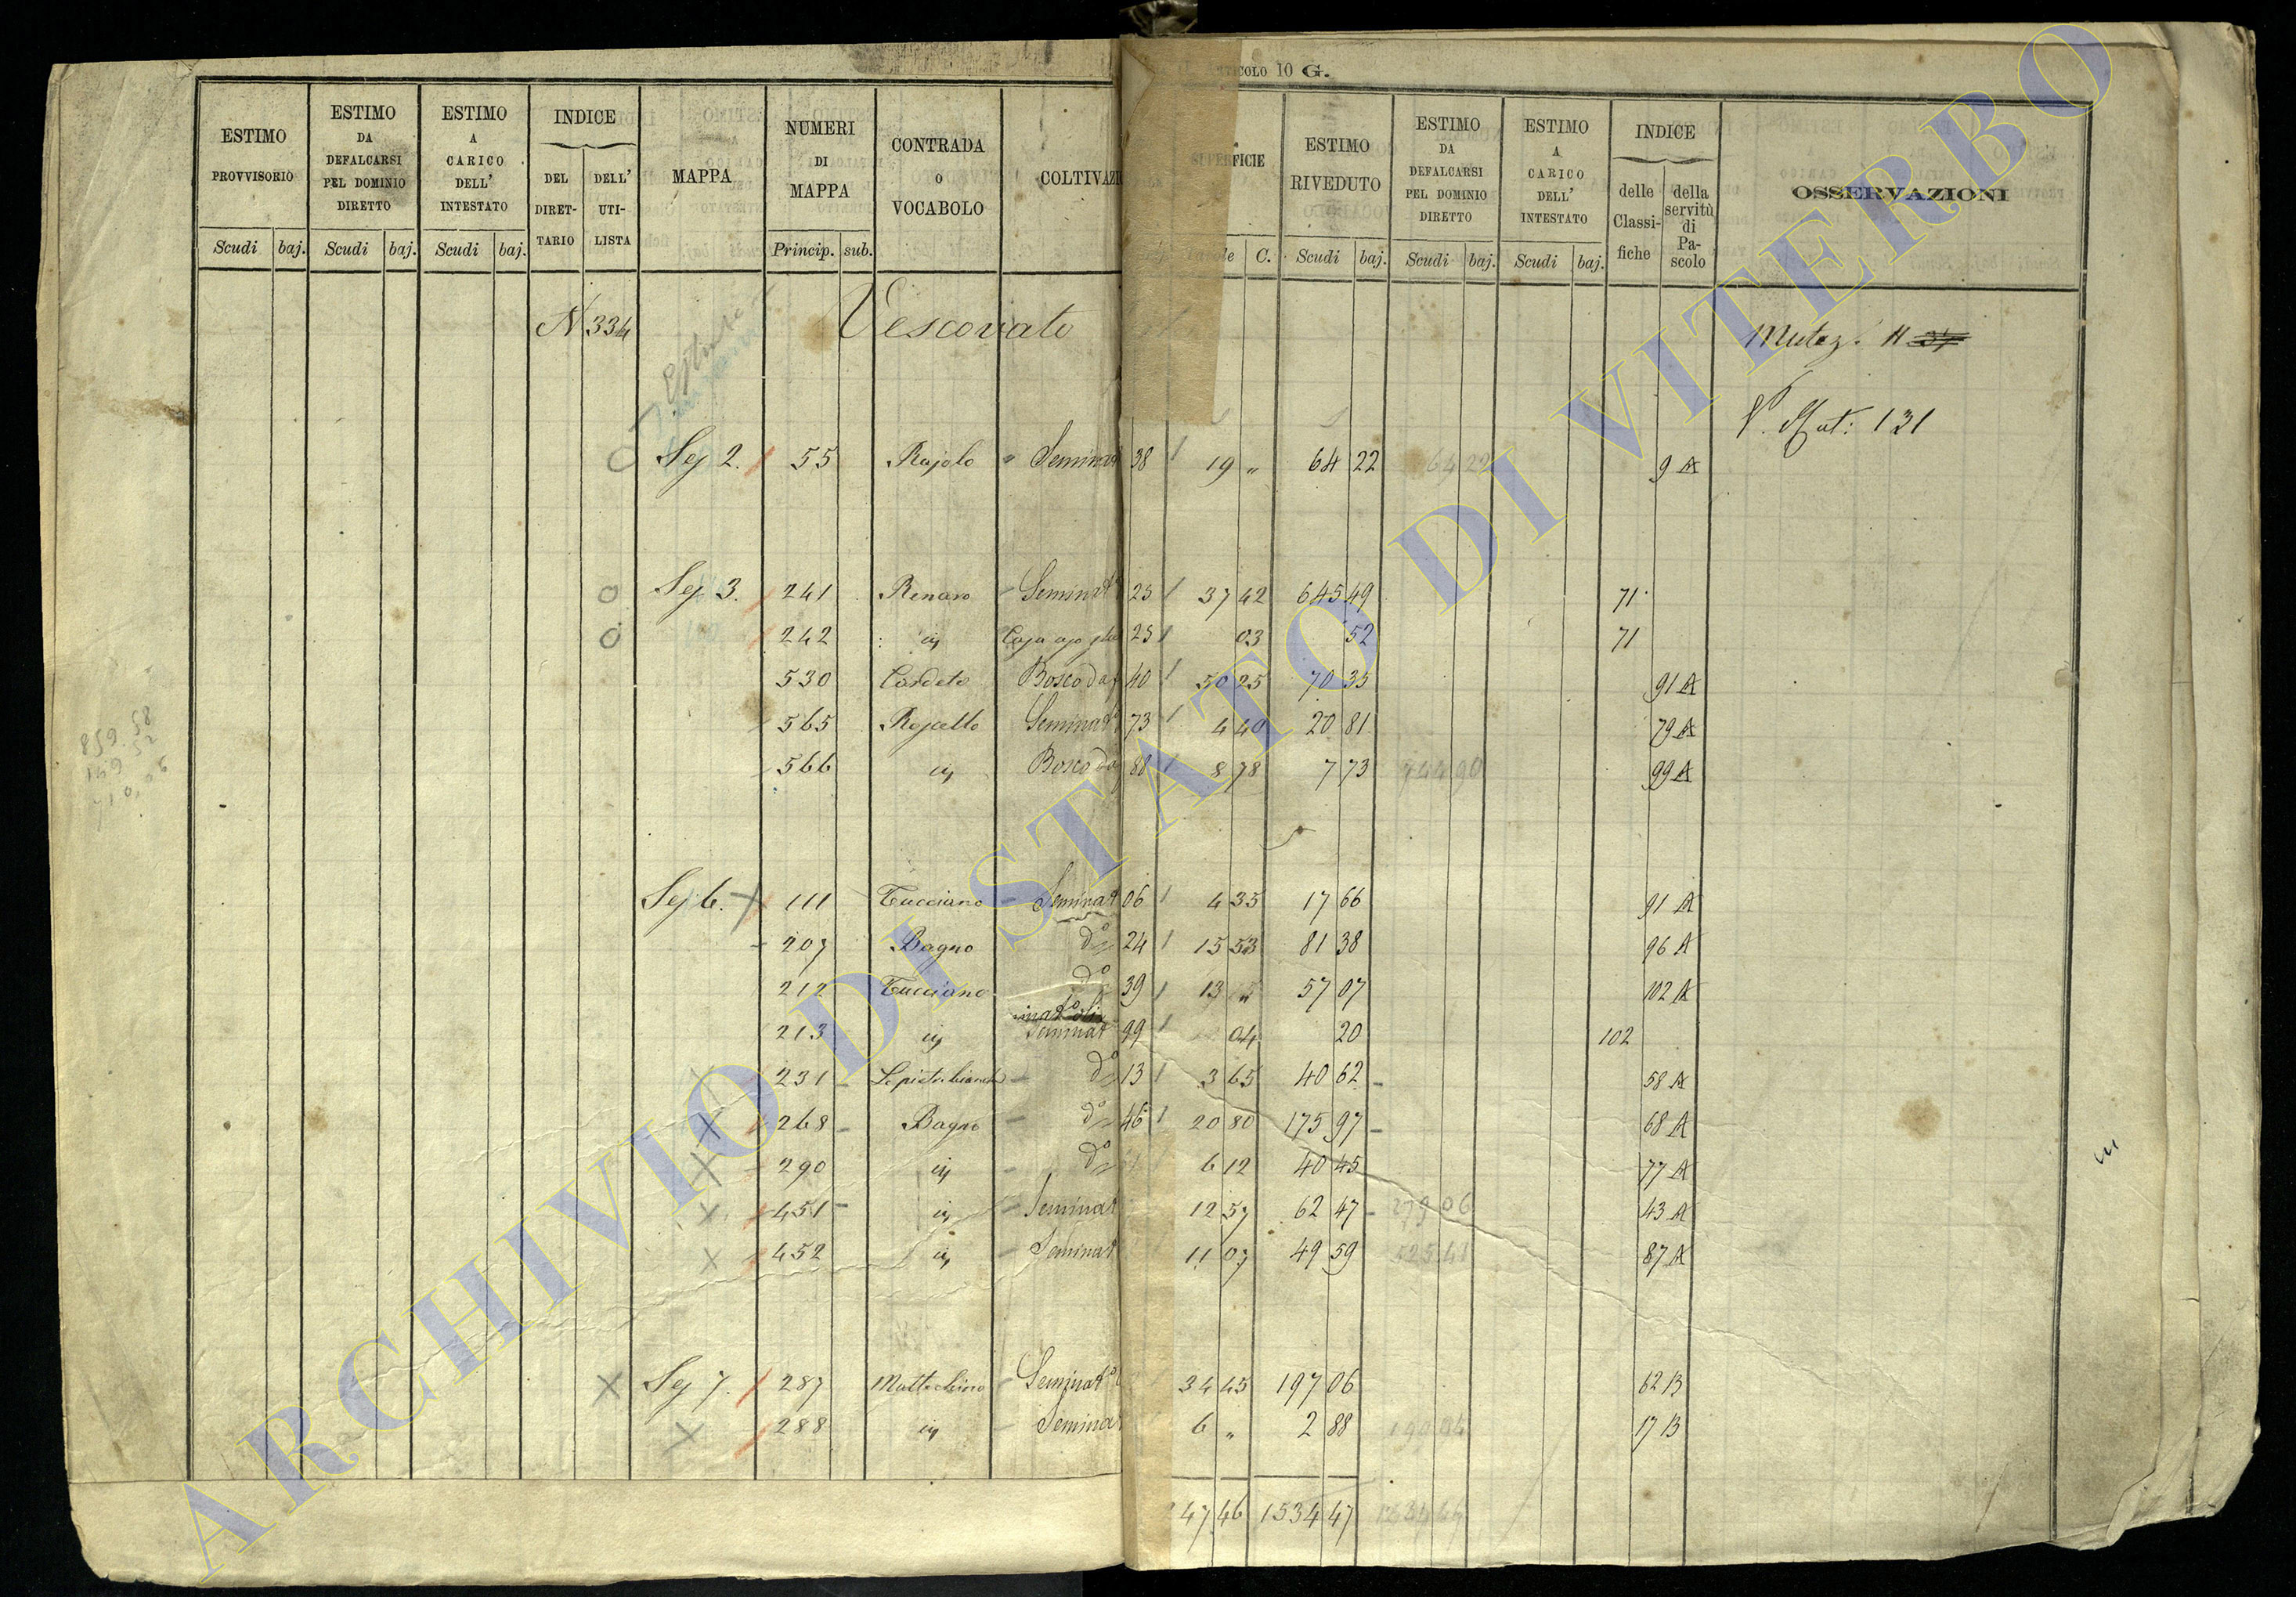 ARTICOLO 10 G.
ESTIMO PROVVISORIO | ESTIMO DA DEFALCARSI PEL DOMINIO DIRETTO | ESTIMO A CARICO DELL' INTESTATO | INDICE DEL DIRETTARIO DELL' UTILISTA | MAPPA | NUMERI DI MAPPA | CONTRADA O VOCABOLO | COLTIVAZI | SUPERFICIE | ESTIMO RIVEDUTO | ESTIMO DA DEFALCARSI PEL DOMINIO DIRETTO | ESTIMO A CARICO DELL' INTESTATO | INDICE delle Classifiche della servitù di Pascolo | OSSERVAZIONI
Scudi baj. Scudi baj. Scudi baj. Princip. sub. C. Scudi baj. Scudi baj. Scudi baj.
N 334 Vescovato Mutaz. 
Mut: 131
Sez 2. 55 Rajolo Seminat 38 19 " 64 22 64 22 9 A
Sez 3. 241 Renaro Seminat 25 37 42 645 49 71
242 25 03 52 71
530 Cardeto Bosco da 40 50 25 70 35 91 A
565 Seminat 73 4 40 20 81 79 A
566 Bosco da 80 8 78 7 73 744 90 99 A
859.58
149 52
710,06
Sez 6. 111 Tucciano Seminat 06 4 35 17 66 91 A
207 Bagno d° 24 15 53 81 38 96 A
212 Tucciano d° 39 13 " 57 07 102 A
213 Seminat 99 04 20 102
231 d° 13 3 65 40 62 58 A
268 Bagno d° 46 20 80 175 97 68 A
290 d° 6 12 40 45 77 A
451 Seminat 12 57 62 47 279 06 43 A
452 Seminat 11 07 49 59 525 41 87 A
Sez 7. 287 Seminat 34 45 197 06 62 B
288 Seminat 6 " 2 88 17 B
47 46 1534 47
ARCHIVIO DI STATO DI VITERBO